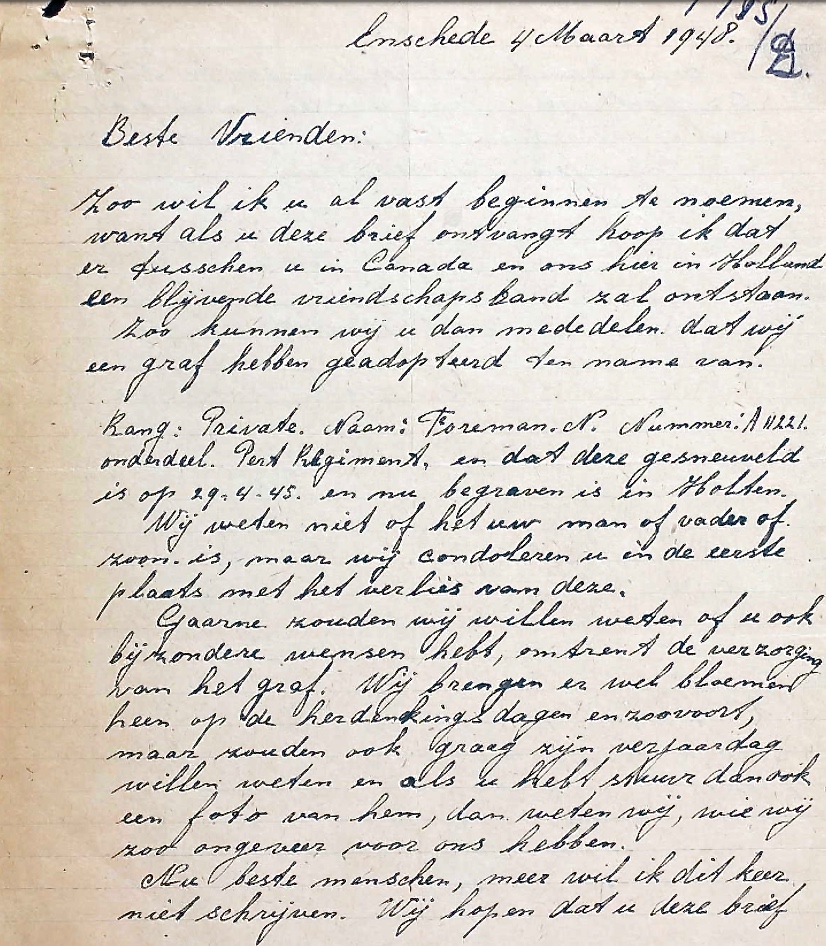 Enschede 4 Maart 1948.
Beste Vrienden:
Zoo wil ik u al vast beginnen te noemen,
want als u deze brief ontvangt hoop ik dat
er tusschen u in Canada en ons hier in Holland
een blijvende vriendschapsband zal ontstaan.
Zoo kunnen wij u dan mededelen. dat wij
een graf hebben geadopteerd ten name van.
Rang: Private. Naam: Foreman. N. Nummer: A 11221.
onderdeel. Pert Regiment. en dat deze gesneuveld
is op 29-4-45. en nu begraven is in Holten.
Wij weten niet of het uw man of vader of.
zoon. is, maar wij condoleren u in de eerste
plaats met het verlies van deze.
Gaarne zouden wij willen weten of u ook
bijzondere wensen hebt, omtrent de verzorging
van het graf. Wij brengen er wel bloemen
heen op de herdenkingsdagen enzoovoort,
maar zouden ook graag zijn verjaardag
willen weten en als u hebt, stuur dan ook
een foto van hem, dan weten wij, wie wij
zoo ongeveer voor ons hebben.
Nu beste menschen, meer wil ik dit keer
niet schrijven. Wij hopen dat u deze brief